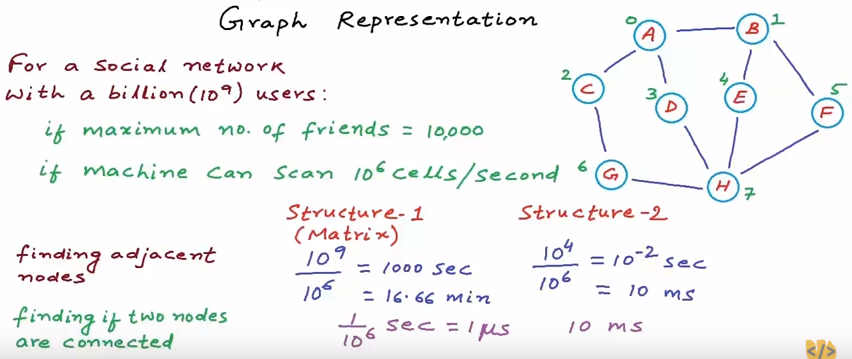 Graph Representation
For a social network
with a billion (10⁹) users:
if maximum no. of friends = 10,000
if machine can scan 10⁶ cells/second
0 A
B 1
2 C
3 D
4 E
5 F
6 G
H 7
Structure-1
(Matrix)
Structure-2
finding adjacent
nodes
10⁹/10⁶ = 1000 sec
= 16.66 min
10⁴/10⁶ = 10⁻² sec
= 10 ms
finding if two nodes
are connected
1/10⁶ sec = 1 μs
10 ms
</>